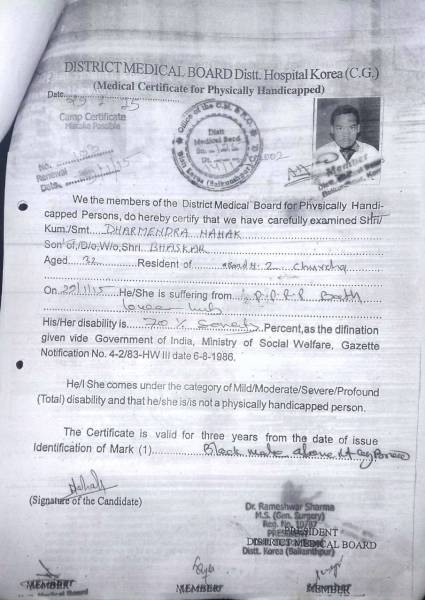 DISTRICT MEDICAL BOARD Distt. Hospital Korea (C.G.)
(Medical Certificate for Physically Handicapped)
Date
Camp Certificate
Mistake Possible
Office of the C.M. & H.O.
Distt
Medical Board
Distt. Korea (Baikunthpur)
No.
Renewal
Date
Member
We the members of the District Medical Board for Physically Handi-
capped Persons, do hereby certify that we have carefully examined Shri/
Kum./Smt. DHARMENDRA NAHAK
Son of,/D/o,W/o,Shri. BHASKAR
Aged 32 Resident of
On 22/1/15 He/She is suffering from P.P.R.P Both
lower limb
His/Her disability is 70% Percent,as the difination
given vide Government of India, Ministry of Social Welfare, Gazette
Notification No. 4-2/83-HW III date 6-8-1986.
He/I She comes under the category of Mild/Moderate/Severe/Profound
(Total) disability and that he/she is/is not a physically handicapped person.
The Certificate is valid for three years from the date of issue
Identification of Mark (1) Black mole above
(Signature of the Candidate)
Dr. Rameshwar Sharma
M.S. (Gen. Surgery)
Reg. No.
PRESIDENT
DISTRICT MEDICAL BOARD
Distt. Korea (Baikunthpur)
MEMBER MEMBER MEMBER